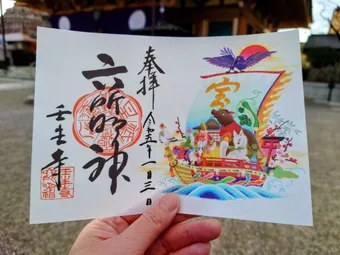 奉拝
令和五年一月三日
六所明神
壬生寺